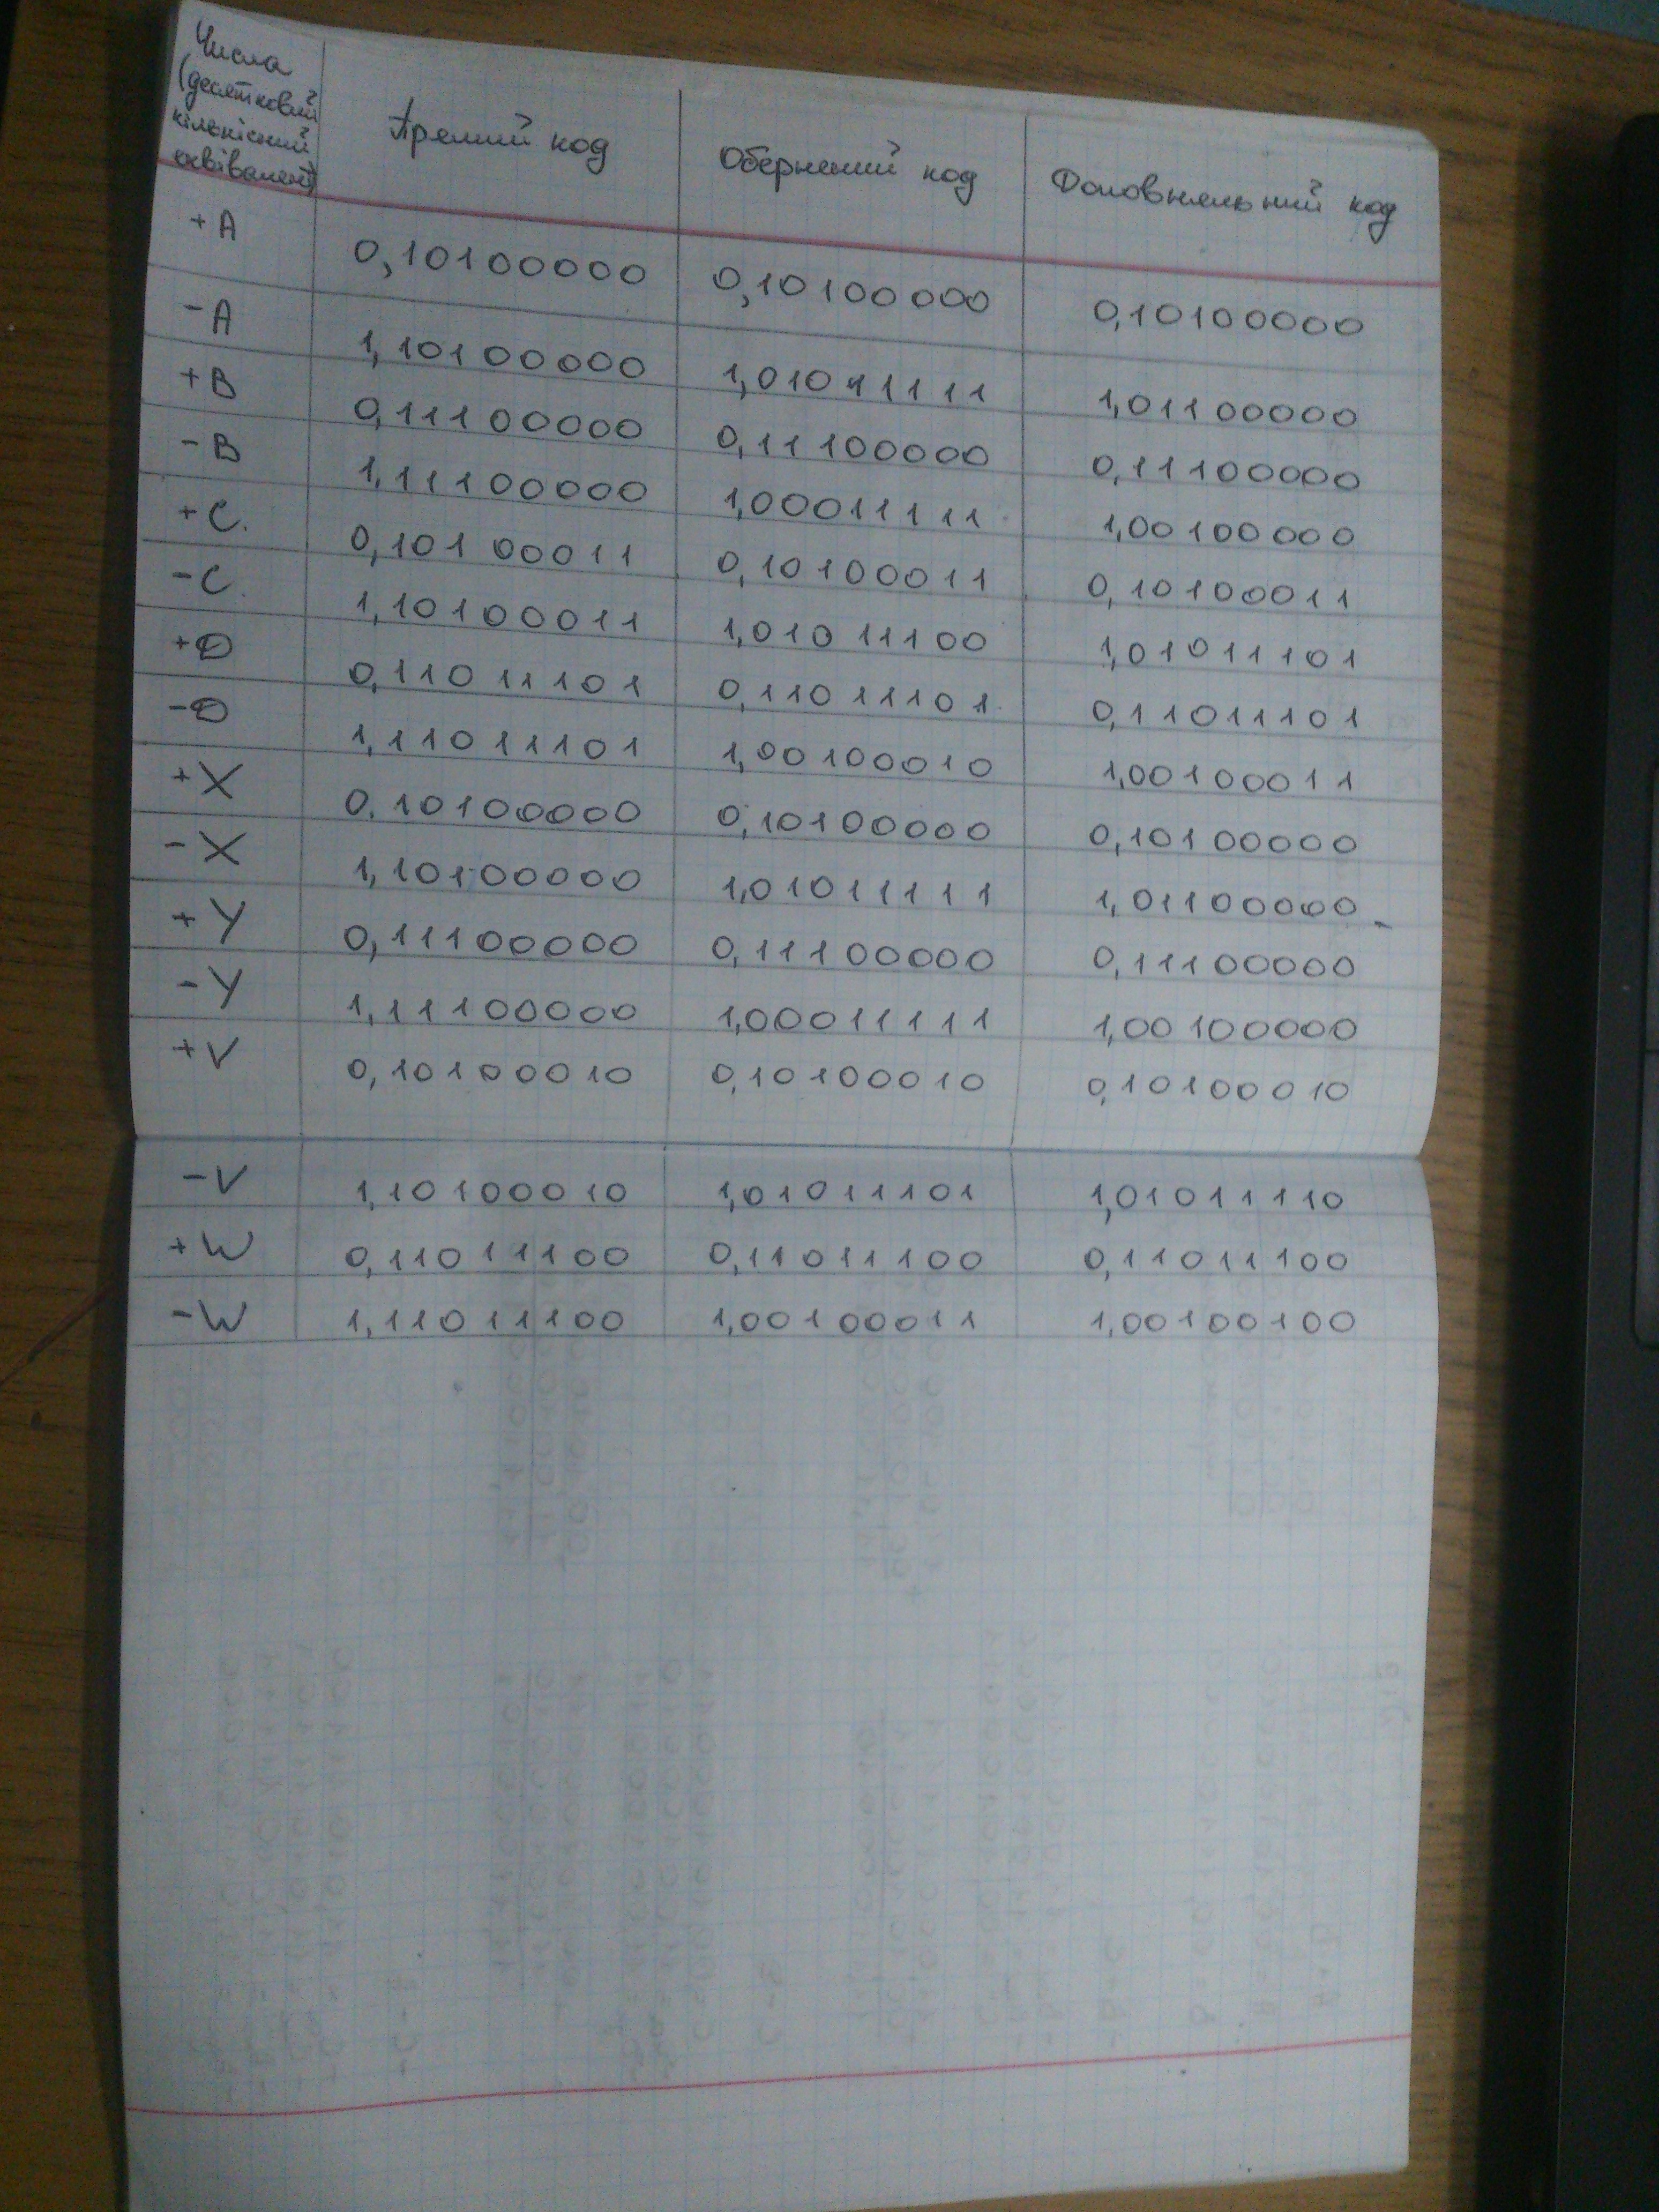 Числа
(десятковий
кількісний
еквівалент)
Прямий код
Обернений код
Доповняльний код
+A 0,10100000 0,10100000 0,10100000
-A 1,10100000 1,01011111 1,01100000
+B 0,11100000 0,11100000 0,11100000
-B 1,11100000 1,00011111 1,00100000
+C. 0,10100011 0,10100011 0,10100011
-C. 1,10100011 1,01011100 1,01011101
+D 0,11011101 0,11011101 0,11011101
-D 1,11011101 1,00100010 1,00100011
+X 0,10100000 0,10100000 0,10100000
-X 1,10100000 1,01011111 1,01100000
+Y 0,11100000 0,11100000 0,11100000
-Y 1,11100000 1,00011111 1,00100000
+V 0,10100010 0,10100010 0,10100010
-V 1,10100010 1,01011101 1,01011110
+W 0,11011100 0,11011100 0,11011100
-W 1,11011100 1,00100011 1,00100100